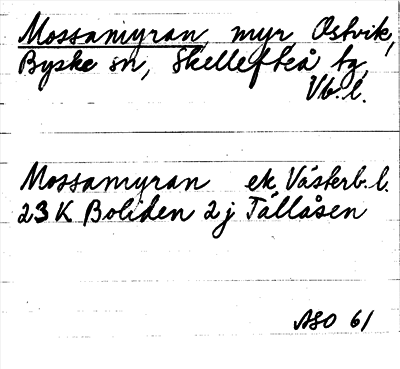 Mossamyran, myr Ostvik,
Byske sn, Skellefteå tg,
Vb.l.
Mossamyran ek, Västerb.l.
23K Boliden 2j Tällåsen
ASO 61